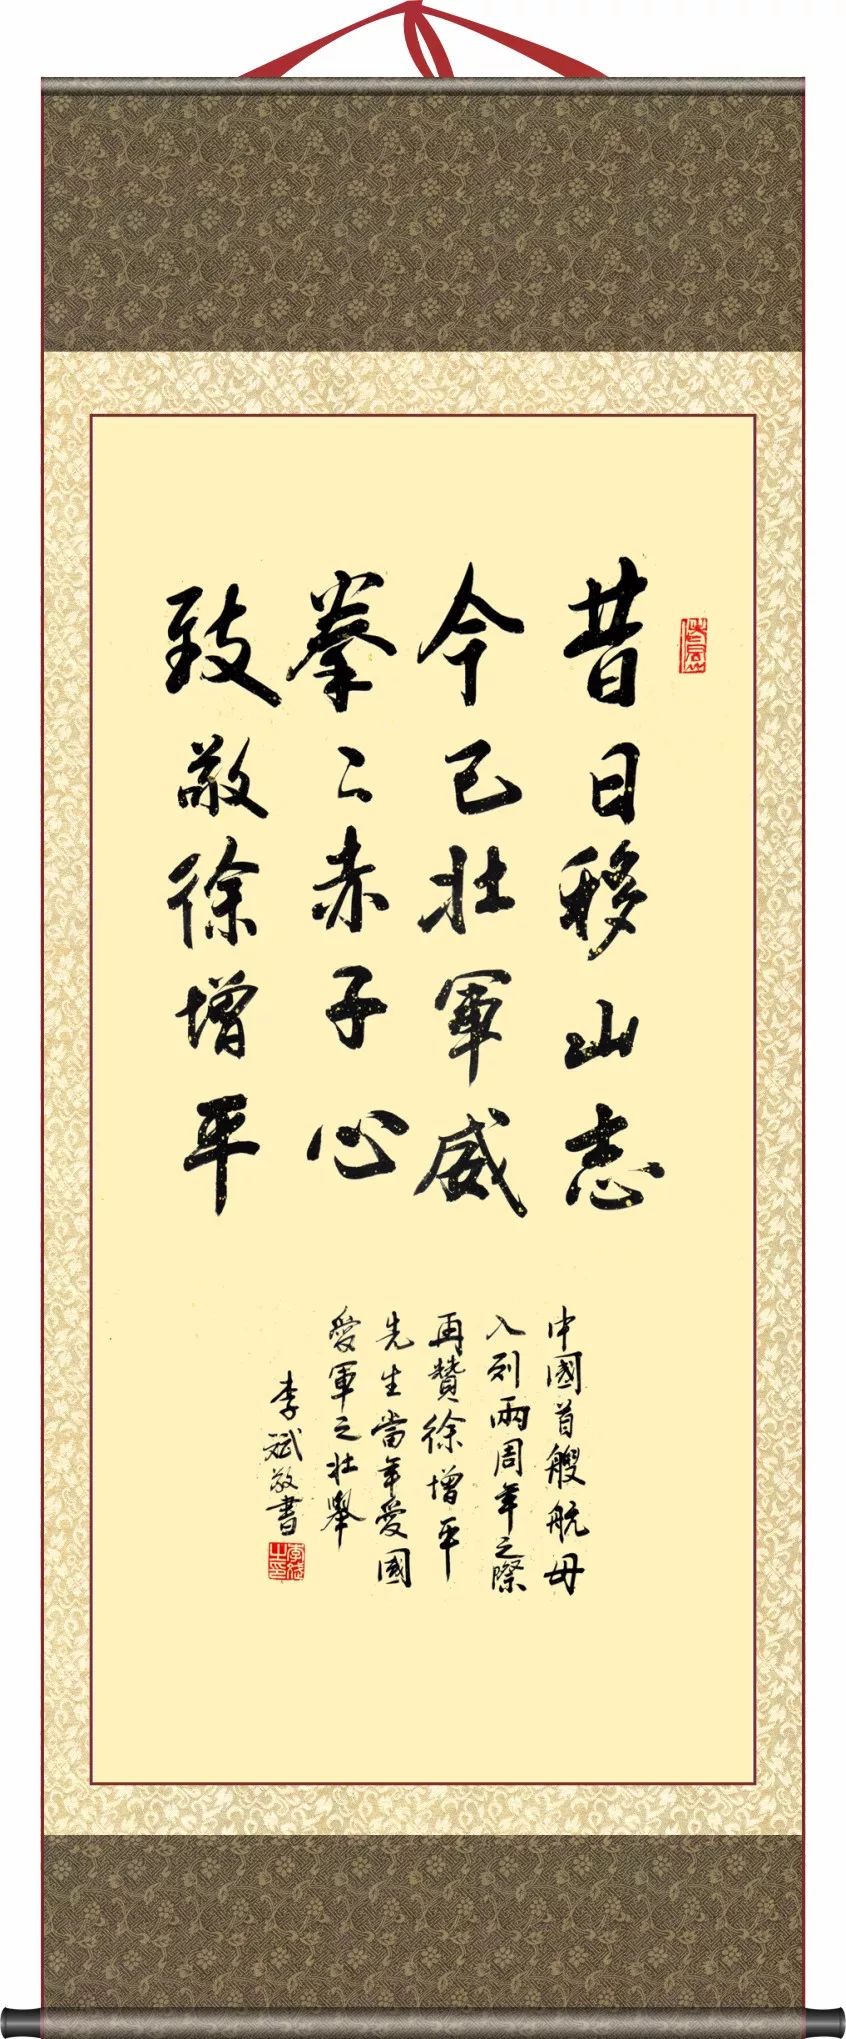 昔日移山志
今已壮軍威
拳〻赤子心
致敬徐增平
中國首艘航母
入列兩周年之際
再贊徐增平
先生當年愛國
愛軍之壯舉
李斌敬書